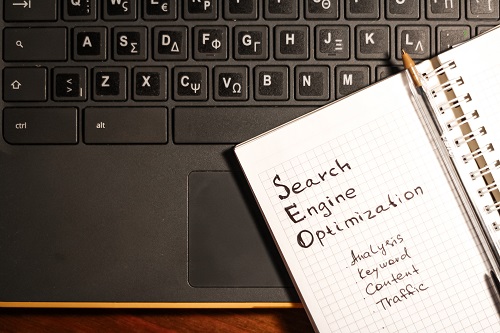 A S Σ D Δ F Φ G Γ H J Ξ K L Λ
< > | Z X C Ψ V Ω B N M
ctrl alt
Search
Engine
Optimization
· Analysis
· Keyword
· Content
· Traffic